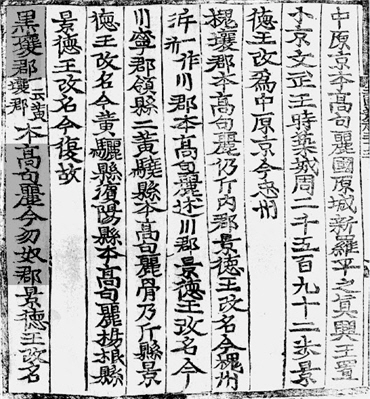 中原京本高句麗國原城新羅平之眞興王置
小京文武王時築城周二千五百九十二歩景
德王改爲中原京今忠州
槐壤郡本高句麗仍斤内郡景德王改名今槐州
泝作川郡本高句麗述川郡景德王改名今
川寧郡領縣二黄驍縣本高句麗骨乃斤縣景
德王改名今黄驪縣濱陽縣本高句麗楊根縣
景德王改名今復故
黑壤郡一云黄壤郡本高句麗今勿奴郡景德王改名